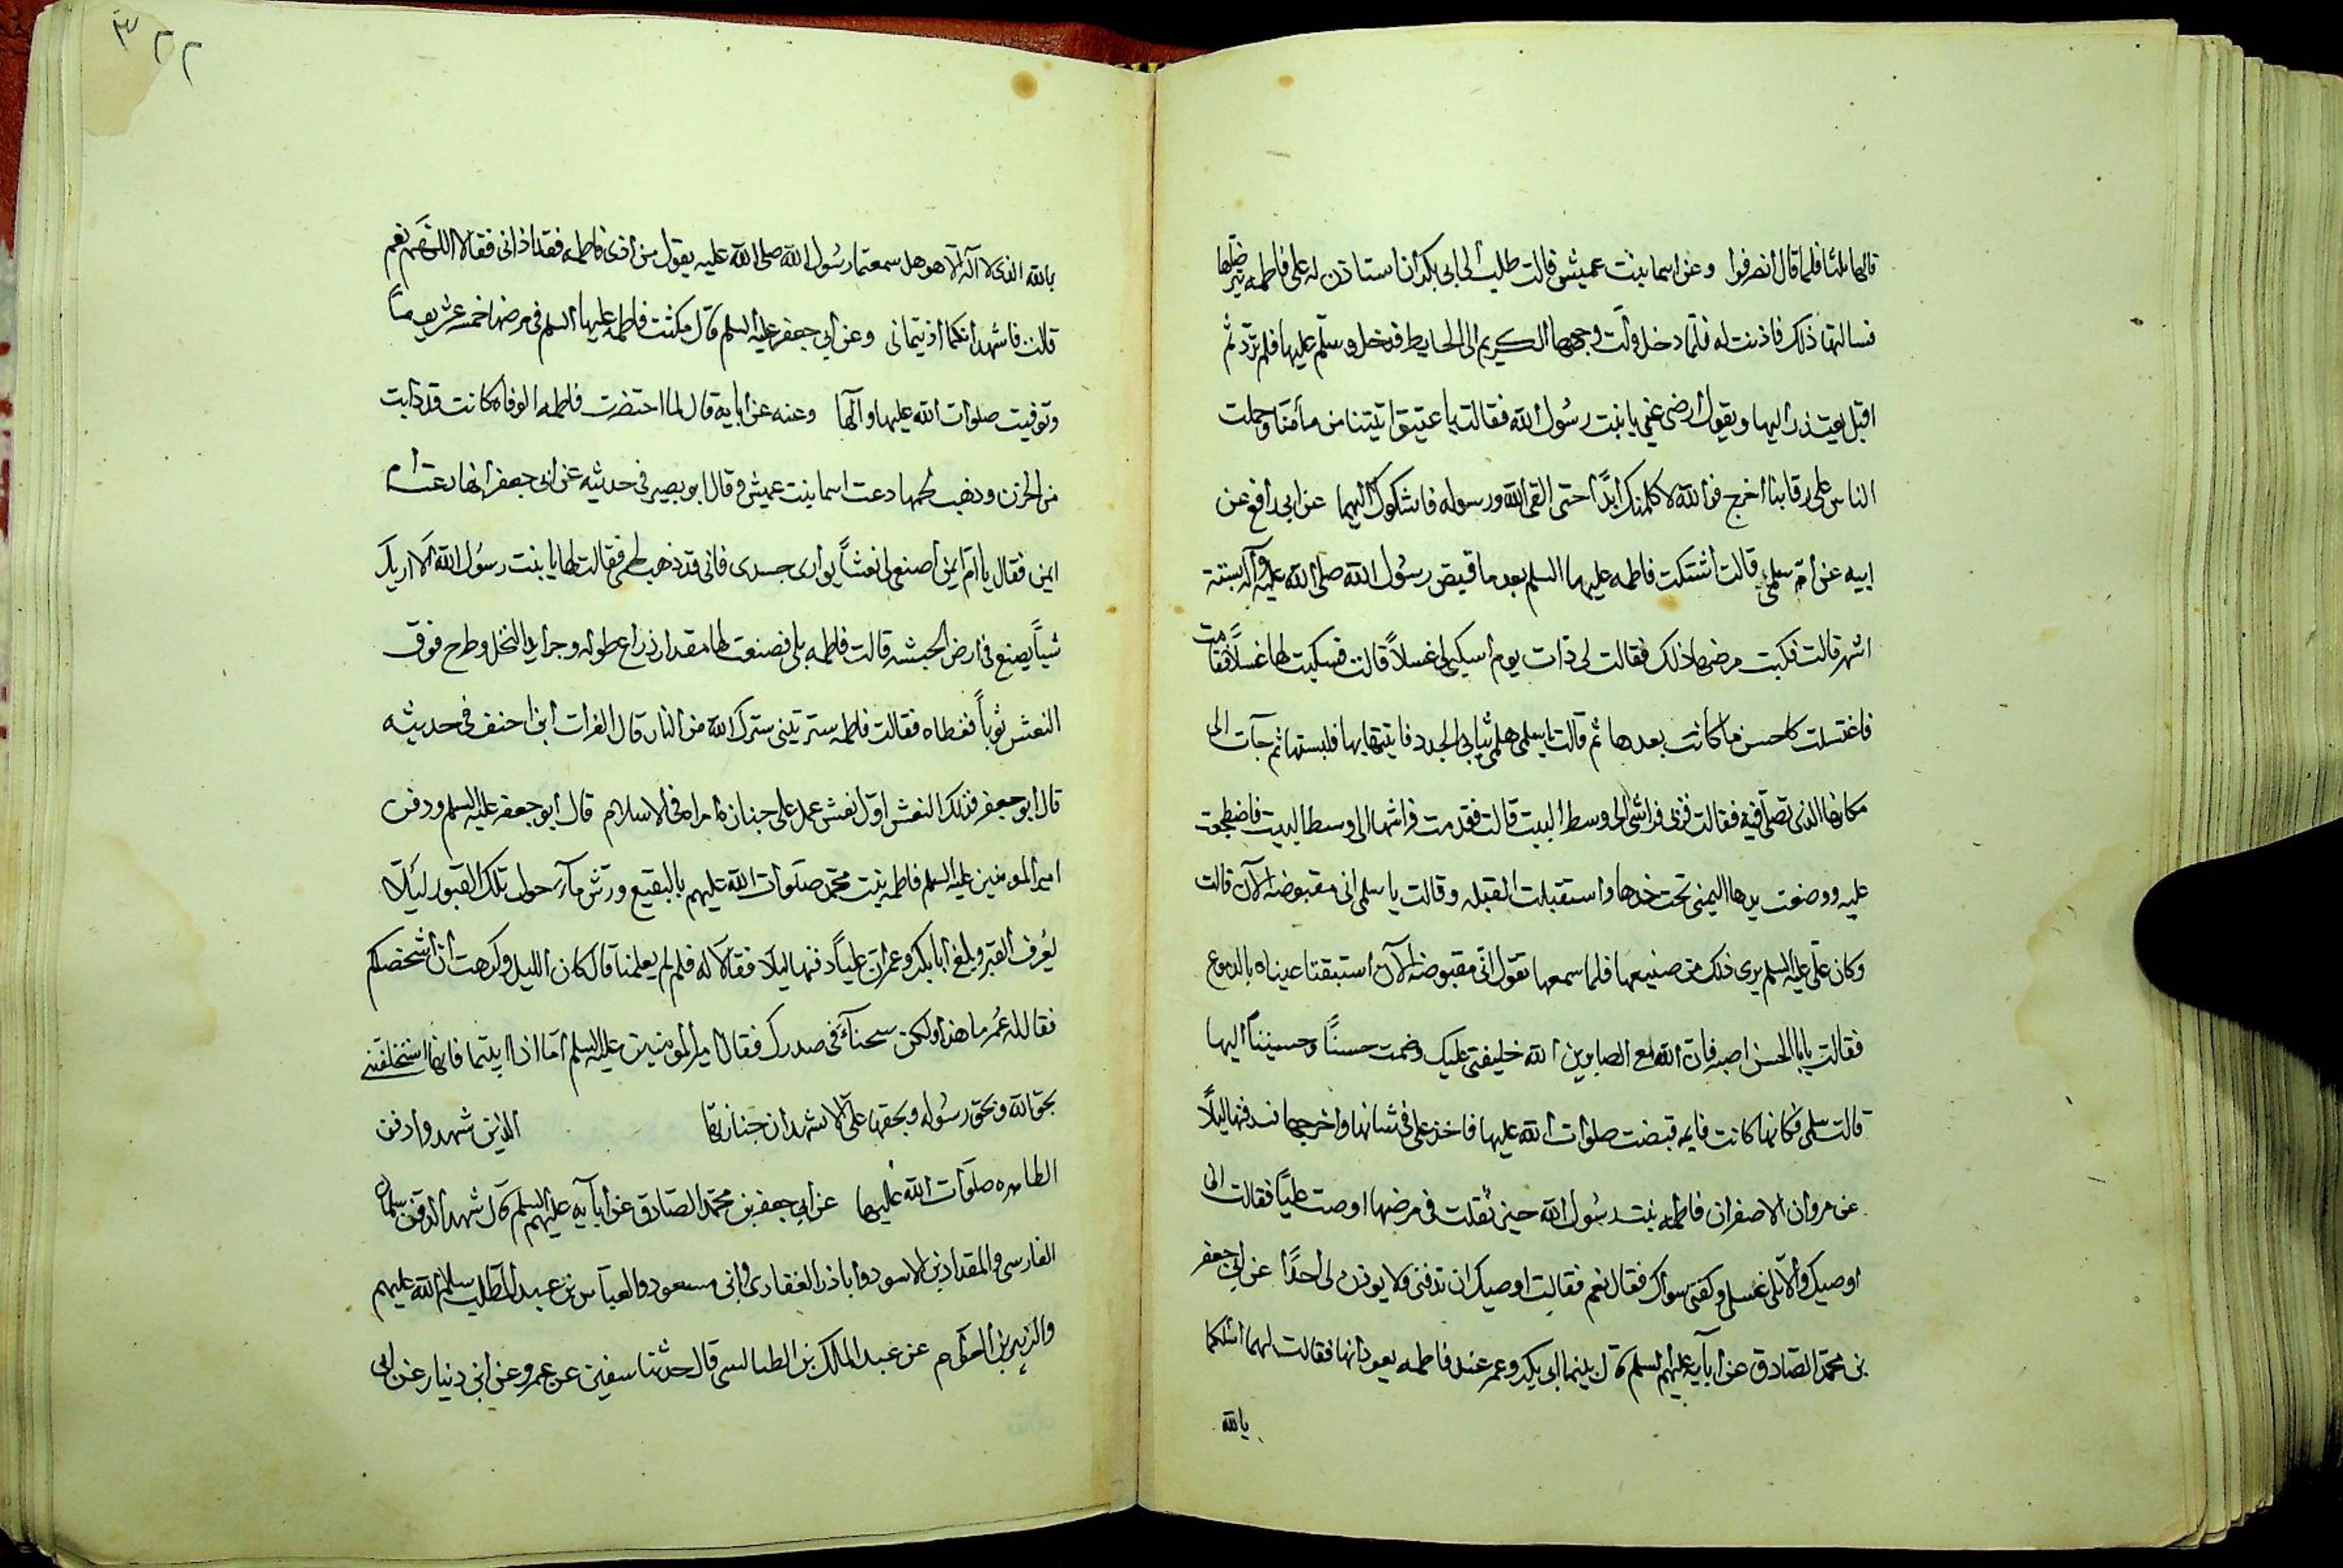 قالها ثلثا فلما قال انصرفوا وعن اسما بنت عميس قالت طلب الى ابى بكر ان استاذن له على فاطمه يترضاها
فسالتها ذلك فاذنت له فلما دخل ولت وجهها الكريم الى الحايط فدخل وسلم عليها فلم ترد ثم
اقبل يعتذر اليها ويقول ارضى عنى يا بنت رسول الله فقالت يا عتيق اتيتنا من مأمننا وحملت
الناس على رقابنا اخرج فوالله لا كلمتك ابدًا حتى القى الله ورسوله فاشكوك اليهما عن ابى رافع عن
ابيه عن امّ سلمى قالت اشتكت فاطمه عليها السلم بعد ما قبض رسول الله صلى الله عليه وآله بستة
اشهر قالت فكبت مرضها ذلك فقالت لى ذات يوم اسكبى لى غسلاً قالت فسكبت لها غسلاً فقامت
فاغتسلت كاحسن ما كانت بعدها ثم قالت يا سلمى هلمى ثيابى الجدد فاتيتها بها فلبستها ثم جآت الى
مكانها الذى تصلى فيه فقالت قربى فراشى الى وسط البيت قالت فقدمت فراشها الى وسط البيت فاضطجعت
عليه ووضعت يدها اليمنى تحت خدها واستقبلت القبله وقالت يا سلمى انى مقبوضه الآن قالت
وكان على عليه السلم يرى ذلك من صنيعها فلما سمعها تقول انى مقبوضه الآن استبقتا عيناه بالدموع
فقالت يا ابا الحسن اصبر فان الله مع الصابرين الله خليفتى عليك وضمت حسنًا وحسيننا اليها
قالت سلمى فكانها كانت نايمه قبضت صلوات الله عليها فاخذ على فى شانها واخرجها فدفنها ليلًا
عن مروان الاصفر ان فاطمه بنت رسول الله حين ثقلت فى مرضها اوصت عليًا فقالت انى
اوصيك والا تلى غسلى وكفنى سواك فقال نعم فقالت اوصيك ان تدفنى ولا يوذن لى احدًا عن ابى جعفر
بن محمد الصادق عن آبآيه عليهم السلم قال بينما ابى بكر وعمر عند فاطمه يعودانها فقالت لهما اسالكما
بالله
٣٢٢
بالله الذى لا اله الا هو هل سمعتما رسول الله صلى الله عليه يقول من اذى فاطمه فقد اذانى فقالا اللهم نعم
قالت فاشهد انكما اذيتمانى وعن ابى جعفر عليه السلم قال مكثت فاطمه عليها السلم فى مرضها خمسه عشر يومًا
وتوفيت صلوات الله عليها وآلها وعنه عن ابايه قال لما احتضرت فاطمه الوفاه كانت قد ذابت
من الحزن وذهب لحمها دعت اسما بنت عميس وقال ابو بصير فى حديثه عن ابى جعفر انها دعت ام
ايمن فقال يا ام ايمن اصنعى لى نعشاً يوارى جسدى فانى قد ذهب لحمى فقالت لها يا بنت رسول الله الا اريك
شياً يصنع فى ارض الحبشه قالت فاطمه بلى فصنعت لها مقدار ذراع طوله وجرايد النخل وطرح فوق
النعش ثوباً فغطاه فقالت فاطمه سترتينى سترك الله من النار قال الفرات ابن احنف فى حديثه
قال ابو جعفر فذلك النعش اوّل نعش عمل على جنازة امراه فى الاسلام قال ابو جعفر عليه السلم ودفن
امير المومنين عليه السلم فاطمه بنت محمّد صلوات الله عليهم بالبقيع ورش مآء حول تلك القبور ليلًا
يُعرف القبر وبلغ ابا بكر وعمر ان علياً دفنها ليلا فقالا له فلم لم يعلمنا قال كان الليل وكرهت ان اشخصكم
فقال له عُمر ما هذا ولكن سحنآء فى صدرك فقال امير المومنين عليه السلم اما اذا ابيتما فانها استخلفتنى
بحق الله وبحق رسوله وبحقها على ان لا تشهدان جنازتها الذين شهدوا دفن
الطاهره صلوات الله عليها عن ابى جعفر بن محمد الصادق عن آبآيه عليهم السلم قال شهد الدفن سلمان
الفارسى والمقداد بن الاسود وابا ذر الغفارى وابن مسعود والعباس بن عبد المطلب سلم الله عليهم
والزبير بن العوام عن عبد الملك بن الطيالسى قال حدثنا سفين عن عمرو عن ابن دينار عن ابى